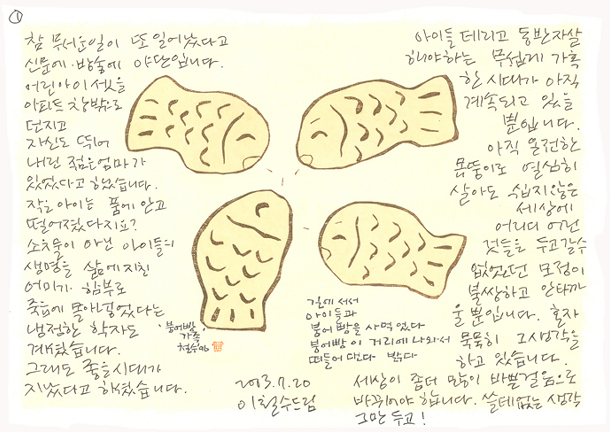 ①
참 무서운일이 또 일어났다고
신문에·방송에 야단입니다.
어린아이 셋을
아파트 창밖으로
던지고
자신도 뛰어
내린 젊은엄마가
있었다고 했습니다.
작은 아이는 품에 안고
떨어졌다지요?
소유물이 아닌 아이들의
생명을 삶에 지친
어미가 함부로
죽음에 몰아넣었다는
냉정한 학자도
계셨습니다.
그래도 좋을시대가
지났다고 하셨습니다.
아이들 데리고 동반자살
해야하는 무섭게 가혹
한 시대가 아직
계속되고 있을
뿐입니다.
아직 온전한
몸뚱이로 열심히
살아도 쉽지않은
세상에
어리디 어린
것들을 두고갈수
없었던 모정이
불쌍하고 안타까
울 뿐입니다. 혼자
묵묵히 그생각을
하고 있습니다.
세상이 좀더 많이 바쁜걸음으로
바뀌어야 합니다. 쓸데없는 생각
그만 두고!
길에 서서
아이들과
붕어빵을 사먹었다
붕어빵이 거리에 나와서
떠들어댄다
'붕어빵
가족'
철수
2003.7.20
이철수드림